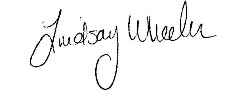 Lindsay Wheeler